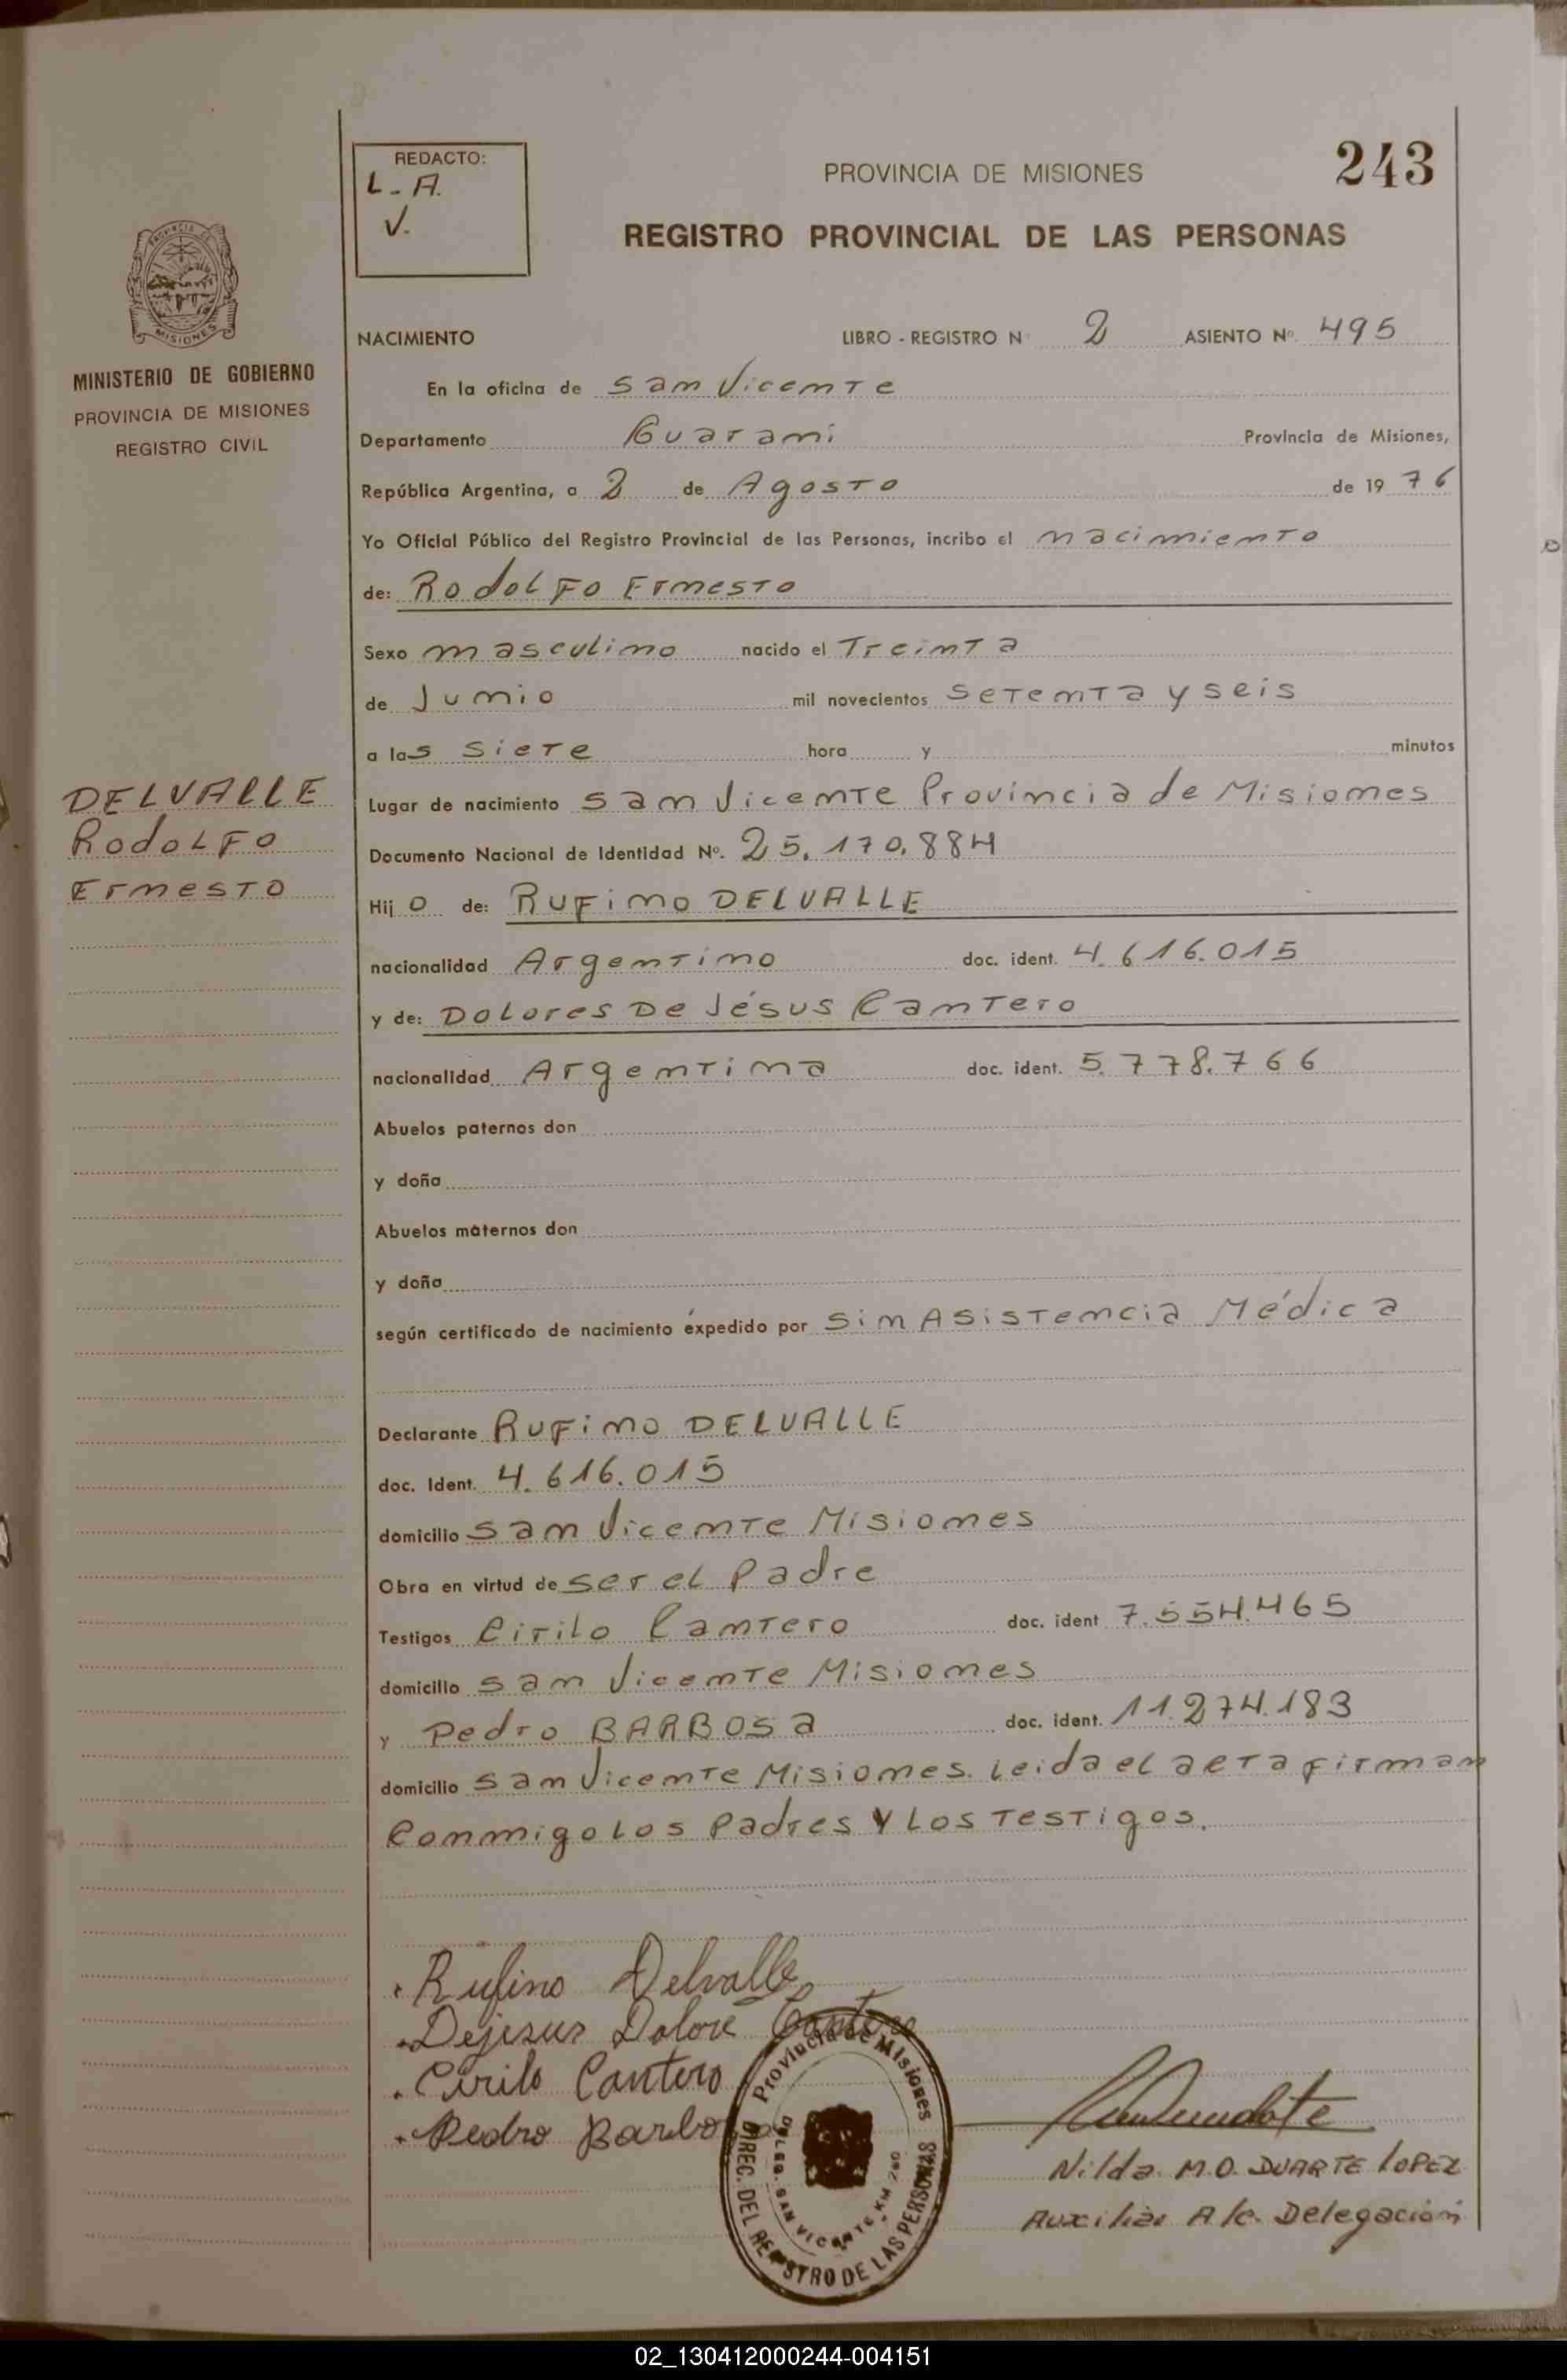 243
REDACTO:
L-A.
V.
PROVINCIA DE MISIONES
REGISTRO PROVINCIAL DE LAS PERSONAS
MISIONES
MINISTERIO DE GOBIERNO
PROVINCIA DE MISIONES
REGISTRO CIVIL
NACIMIENTO LIBRO - REGISTRO N° 2 ASIENTO Nº. 495
En la oficina de San Vicente
Departamento Guaraní Provincia de Misiones,
República Argentina, a 2 de Agosto de 19 76
Yo Oficial Público del Registro Provincial de las Personas, incribo el nacimiento
de: Rodolfo Ernesto
Sexo masculino nacido el Treinta
de Junio mil novecientos setenta y seis
a las siete hora y minutos
DELVALLE
Rodolfo
Ernesto
Lugar de nacimiento San Vicente Provincia de Misiones
Documento Nacional de Identidad Nº. 25.170.884
Hijo de: Rufino DELVALLE
nacionalidad Argentino doc. ident. 4.616.015
y de: Dolores De Jésus Cantero
nacionalidad Argentina doc. ident. 5.778.766
Abuelos paternos don
y doña
Abuelos maternos don
y doña
según certificado de nacimiento expedido por Sin Asistencia Médica
Declarante Rufino DELVALLE
doc. Ident. 4.616.015
domicilio San Vicente Misiones
Obra en virtud de ser el Padre
Testigos Cirilo Cantero doc. ident 7.554.465
domicilio San Vicente Misiones
y Pedro BARBOSA doc. ident. 11.274.183
domicilio San Vicente Misiones. Leida el acta firman
Conmigo los Padres y los Testigos.
Rufino Delvalle
Dejesus Dolore Cantero
Cirilo Cantero
Pedro Barbo
Provincia de Misiones
DIREC. DEL REGISTRO DE LAS PERSONAS
DELEG. SAN VICENTE KM 260
Nilda M.O. DUARTE LOPEZ
Auxiliar A/c. Delegación
02_130412000244-004151